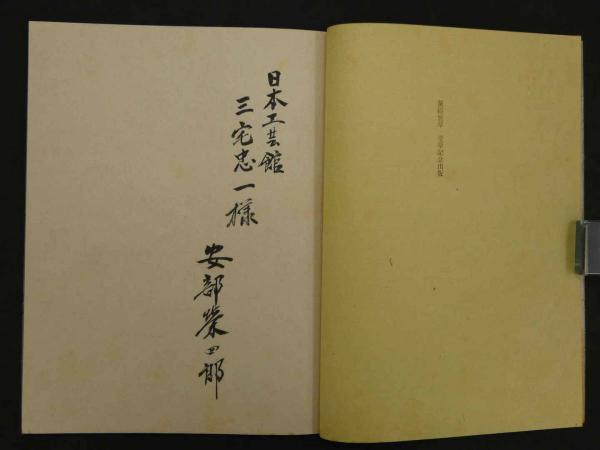 日本工芸館
三宅忠一様
安部榮四郎
受章記念出版